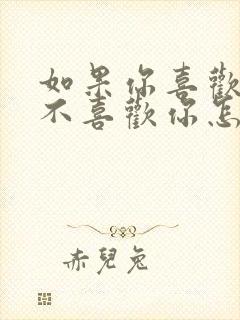 如果你喜歡
不喜歡你怎
赤兒兔